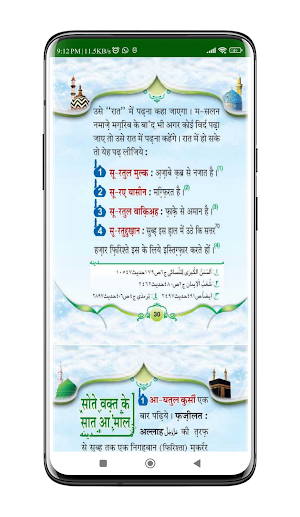 9:12 PM | 11.5KB/s
उसे "रात" में पढ़ना कहा जाएगा। म-सलन
नमाज़े मग़रिब के बा'द भी अगर कोई विर्द पढ़ा
जाए तो उसे रात में पढ़ना कहेंगे। रात में हो सके
तो येह पढ़ लीजिये :
1 सू-रतुल मुल्क : अ़ज़ाबे क़ब्र से नजात है। (1)
2 सू-रए यासीन : मग़्फ़िरत है। (2)
3 सू-रतुल वाक़िअ़ह : फ़ाक़े से अमान है। (3)
4 सू-रतुद्दुख़ान : सुब्ह इस हाल में उठे कि सत्तर
हज़ार फ़िरिश्ते इस के लिये इस्तिग़्फ़ार करते हों। (4)
30
सोते वक़्त के
सात आ'माल
1 आ-यतुल कुर्सी एक
बार पढ़िये। फ़ज़ीलत :
अल्लाह की त़रफ़
से सुब्ह तक एक निगहबान (फ़िरिश्ता) मुक़र्रर